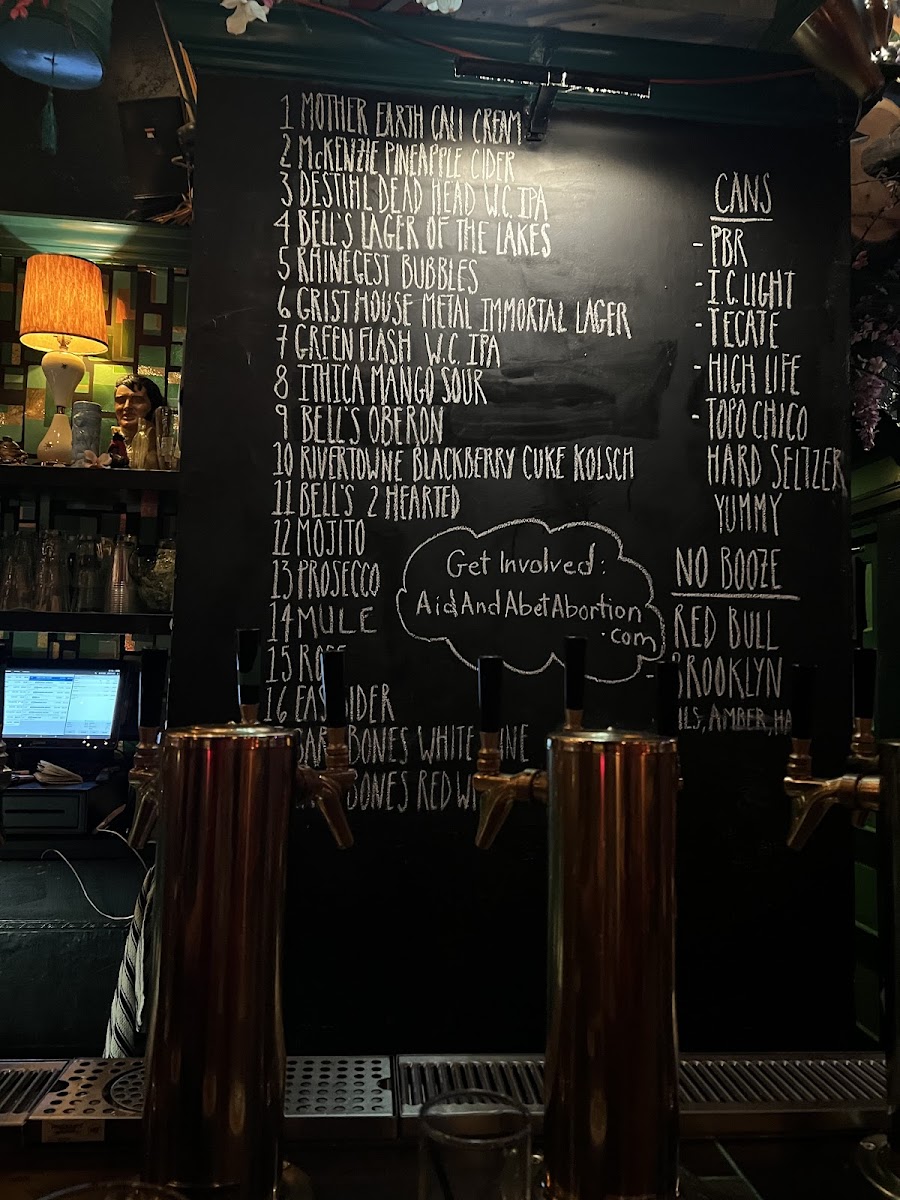 1 MOTHER EARTH CALI CREAM
2 McKENZIE PINEAPPLE CIDER
3 DESTIHL DEAD HEAD W.C. IPA
4 BELL'S LAGER OF THE LAKES
5 RHINEGEST BUBBLES
6 GRIST HOUSE METAL IMMORTAL LAGER
7 GREEN FLASH W.C. IPA
8 ITHICA MANGO SOUR
9 BELL'S OBERON
10 RIVERTOWNE BLACKBERRY CUKE KOLSCH
11 BELL'S 2 HEARTED
12 MOJITO
13 PROSECCO
14 MULE
15
16
BONES WHITE
RED
Get Involved:
AidAndAbetAbortion
.com
CANS
- PBR
- I.C. LIGHT
- TECATE
- HIGH LIFE
- TOPO CHICO
HARD SELTZER
YUMMY
NO BOOZE
RED BULL
BROOKLYN
AMBER,